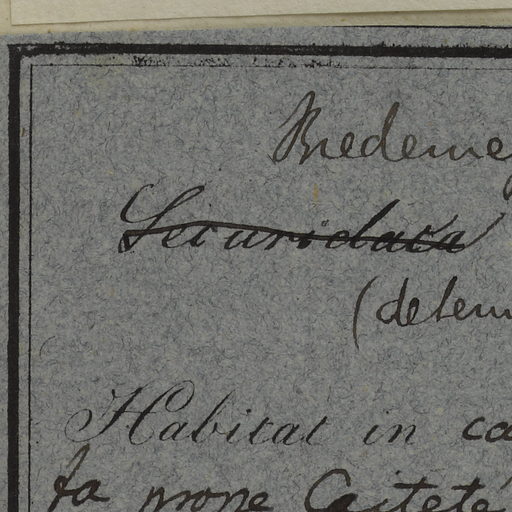 Bredeme
Securidaca
(determ
Habitat in ca
ta prope Caiteté